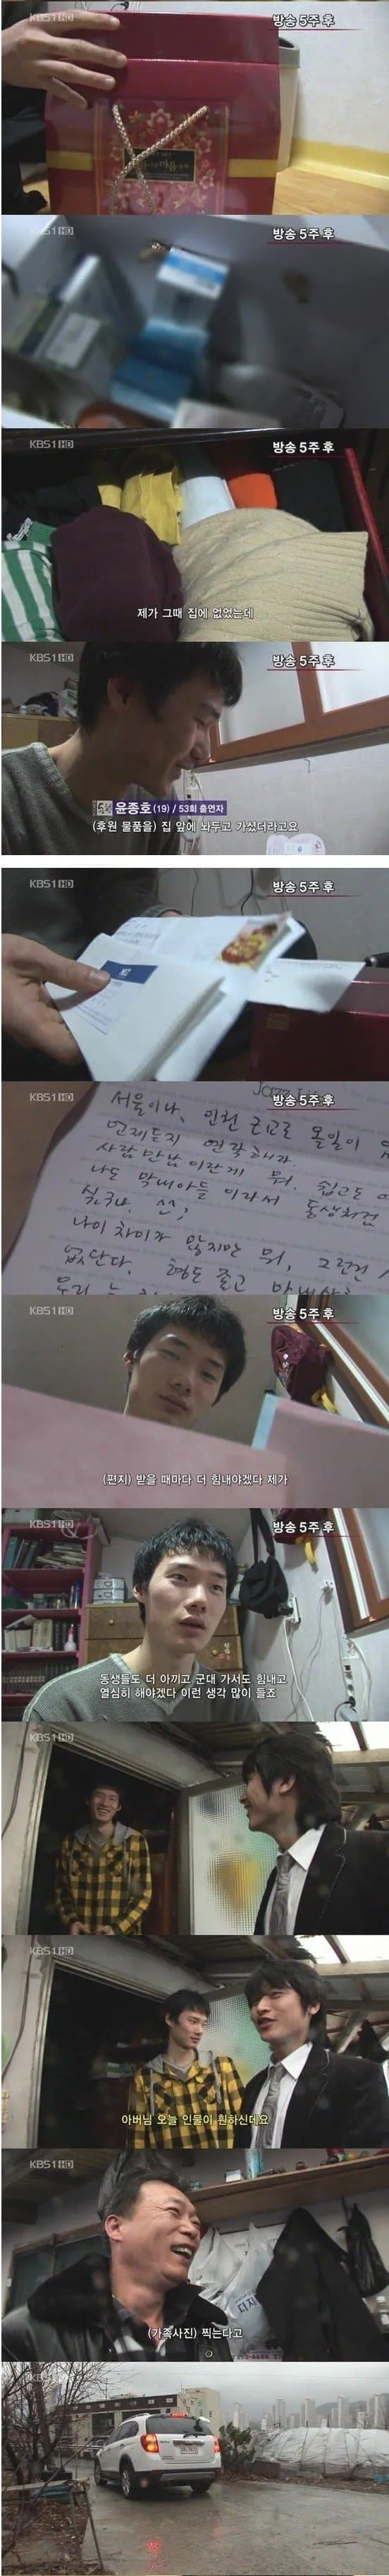 KBS1 HD
방송 5주 후
KBS1 HD
방송 5주 후
KBS1 HD
방송 5주 후
제가 그때 집에 없었는데
KBS1 HD
방송 5주 후
윤종호(19) / 53회 출연자
(후원 물품을) 집 앞에 놔두고 가셨더라고요
KBS1 HD
방송 5주 후
KBS1 HD
방송 5주 후
서울이나, 인천 근교로 올일이
언제든지 연락해라.
사람 만남 이란게 뭐. 쉽고도
나도 막내아들 이라서 동생처럼
나이 차이가 많지만 뭐, 그런건
없단다. 형도 좋고
KBS1 HD
방송 5주 후
(편지) 받을 때마다 더 힘내야겠다 제가
KBS1 HD
방송 5주 후
동생들도 더 아끼고 군대 가서도 힘내고
열심히 해야겠다 이런 생각 많이 들죠
KBS1 HD
KBS1 HD
아버님 오늘 인물이 훤하신데요
KBS1 HD
디지
(가족사진) 찍는다고
KBS1 HD